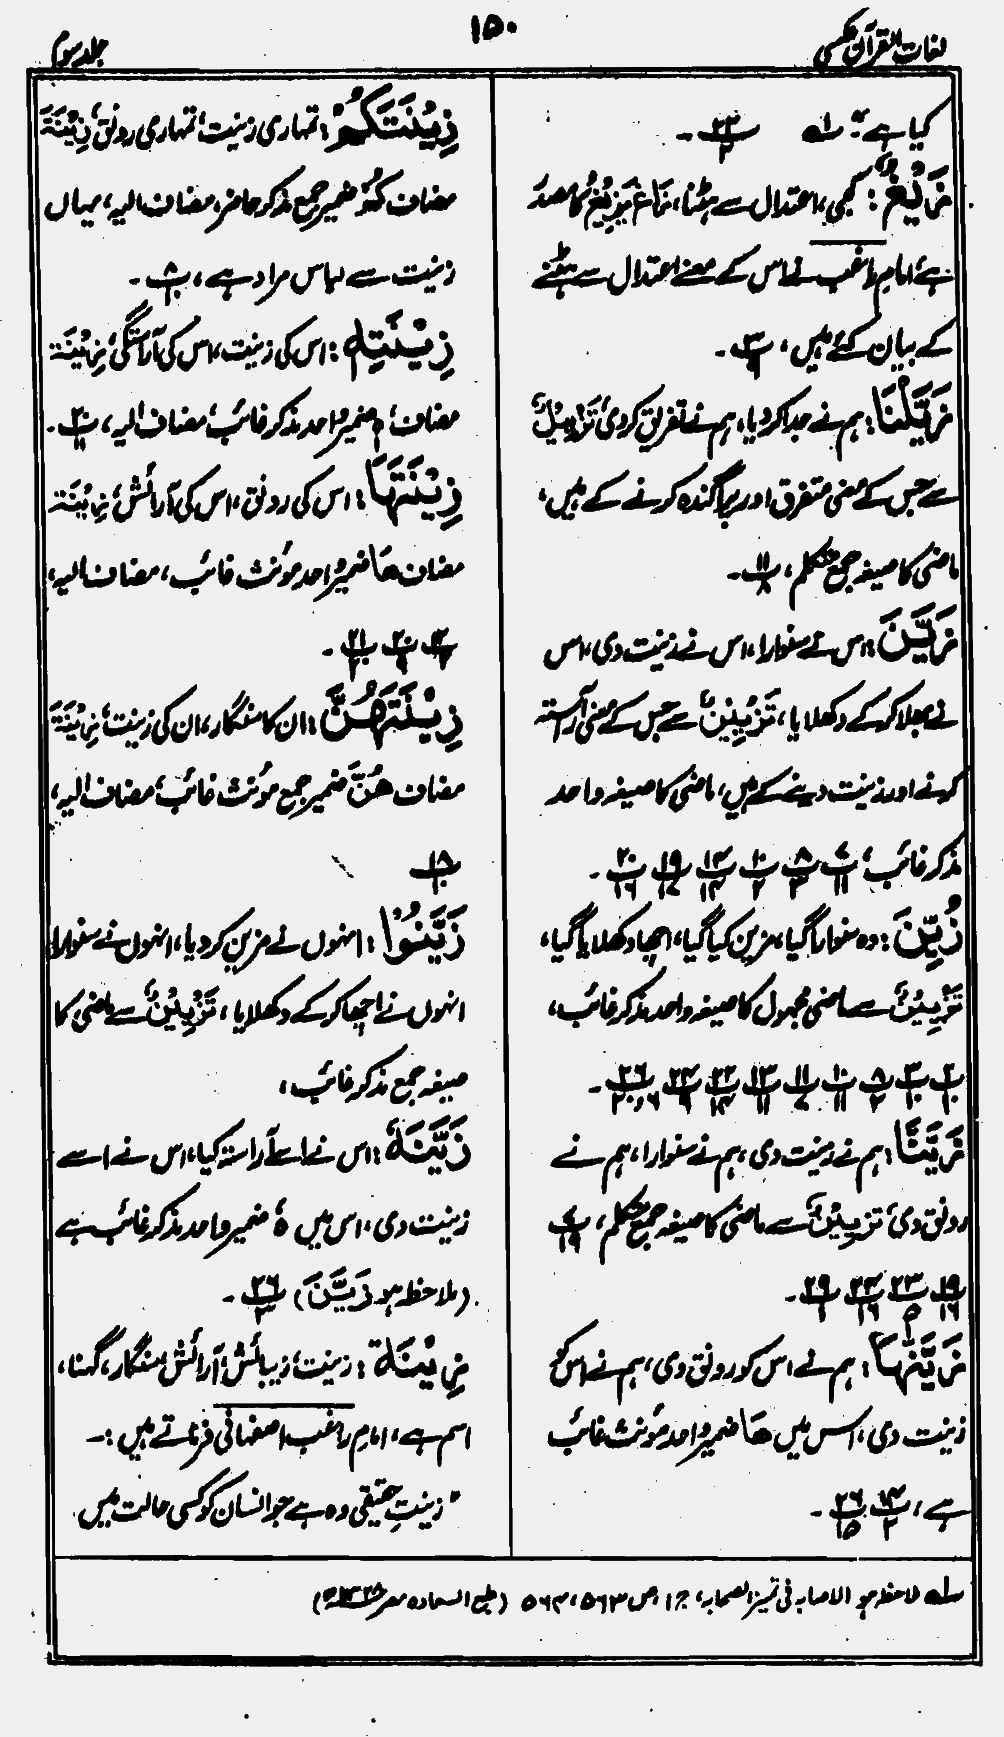 لغات القرآن عکسی
۱۵۰
جلد سوم
کیا ہے؛ لہ پ ۲۳/۲ ۔
زَیْغٌ: کجی، اعتدال سے ہٹنا، زَاغَ یَزِیْغُ کا مصدر
ہے، امام راغب نے اس کے معنے اعتدال سے ہٹنے
کے بیان کئے ہیں، پ ۳/۹ ۔
زَیَّلْنَا: ہم نے جدا کردیا، ہم نے تفریق کردی، تَزْیِیْلٌ
سے جس کے معنی متفرق اور پراگندہ کرنے کے ہیں،
ماضی کا صیغہ جمع متکلم، پ ۱۱/۸ ۔
زَیَّنَ: اس نے سنوارا، اس نے زینت دی، اس
نے بھلا کرکے دکھلایا، تَزْیِیْنٌ سے جس کے معنی آراستہ
کرنے اور زینت دینے کے ہیں، ماضی کا صیغہ واحد
مذکر غائب، پ ۷/۱۱ پ ۸/۳ پ ۱۰/۲ پ ۱۴/۱۴ پ ۱۹/۱۷ پ ۲۰/۱۶ ۔
زُیِّنَ: وہ سنوارا گیا، مزین کیا گیا، اچھا دکھلایا گیا،
تَزْیِیْنٌ سے ماضی مجہول کا صیغہ واحد مذکر غائب،
پ ۲/۱۰ پ ۳/۱۰ پ ۸/۲ پ ۱۰/۱۱ پ ۱۱/۷ پ ۱۳/۱۱ پ ۲۲/۱۴ پ ۲۴/۹ پ ۲۶/۶،۱۰ ۔
زَیَّنَّا: ہم نے زینت دی، ہم نے سنوارا، ہم نے
رونق دی، تزیینٌ سے ماضی کا صیغہ جمع متکلم، پ ۷/۱۹
پ ۱۹/۱۶ پ ۲۳/۵ پ ۲۴/۱۶ پ ۲۹/۱ ۔
زَیَّنّٰہَا: ہم نے اس کو رونق دی، ہم نے اس کو
زینت دی، اس میں ھَا ضمیر واحد مؤنث غائب
ہے، پ ۱۴/۲ پ ۲۶/۱۵ ۔
زِیْنَتَکُمْ: تمہاری زینت، تمہاری رونق، زِیْنَۃَ
مضاف کُمْ ضمیر جمع مذکر حاضر، مضاف الیہ، یہاں
زینت سے لباس مراد ہے، پ ۸/۱۰ ۔
زِیْنَتِہٖ: اس کی زینت، اس کی آراستگی، زِیْنَۃ
مضاف، ہٖ ضمیر واحد مذکر غائب، مضاف الیہ، پ ۲۰/۱۱ ۔
زِیْنَتَہَا: اس کی رونق، اس کی آرائش، زِیْنَۃ
مضاف ھَا ضمیر واحد مؤنث غائب، مضاف الیہ،
پ ۱۲/۲ پ ۲۰/۹ پ ۲۱/۲۰ ۔
زِیْنَتَہُنَّ: ان کا سنگار، ان کی زینت، زِیْنَۃَ
مضاف ھُنَّ ضمیر جمع مؤنث غائب، مضاف الیہ،
پ ۱۸/۱۰
زَیَّنُوْا: انہوں نے مزین کردیا، انہوں نے سنوارا
انہوں نے اچھا کرکے دکھلایا، تَزْیِیْنٌ سے ماضی کا
صیغہ جمع مذکر غائب،
زَیَّنَہٗ: اس نے اسے آراستہ کیا، اس نے اسے
زینت دی، اس میں ہٗ ضمیر واحد مذکر غائب ہے
(ملاحظہ ہو زَیَّنَ) پ ۲۶/۱۳ ۔
زِیْنَۃ: زینت، زیبائش، آرائش، سنگار، گہنا،
اسم ہے، امام راغب اصفہانی فرماتے ہیں:۔
"زینتِ حقیقی وہ ہے جو انسان کو کسی حالت میں
لہ ملاحظہ ہو الاصابہ فی تمییز الصحابہ، ج ۱، ص ۵۶۳، ۵۶۴ (طبع السعادہ مصر ۱۳۲۸ھ)